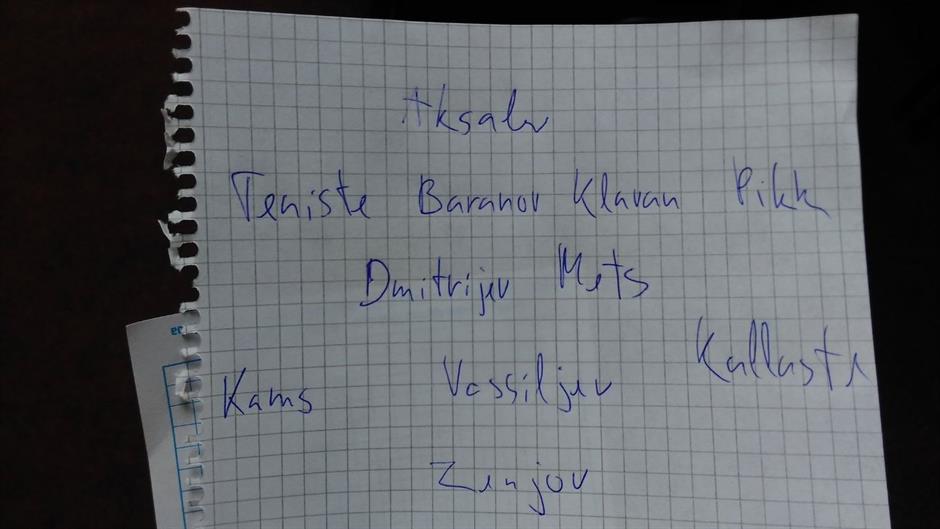 Aksalu
Teniste Baranov Klavan Pikk
Dmitrijev Mets
Kams Vassiljev Kallaste
Zenjov